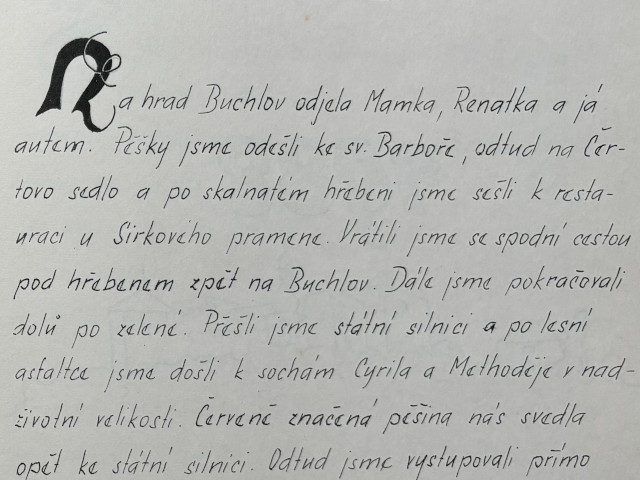 Na hrad Buchlov odjela Mamka, Renatka a já
autem. Pěšky jsme odešli ke sv. Barboře, odtud na Čer-
tovo sedlo a po skalnatém hřebeni jsme sešli k resta-
uraci u Sirkového pramene. Vrátili jsme se spodní cestou
pod hřebenem zpět na Buchlov. Dále jsme pokračovali
dolů po zelené. Přešli jsme státní silnici a po lesní
asfaltce jsme došli k sochám Cyrila a Methoděje v nad-
životní velikosti. Červeně značená pěšina nás svedla
opět ke státní silnici. Odtud jsme vystupovali přímo